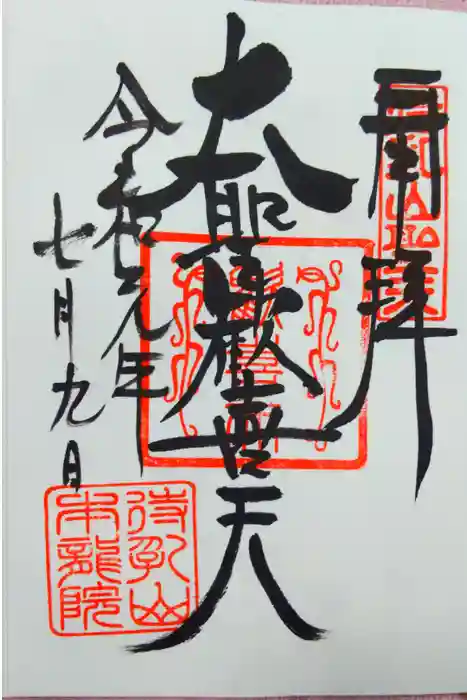 奉拝
大聖歓喜天
令和元年
七月九日
待乳山
本龍院